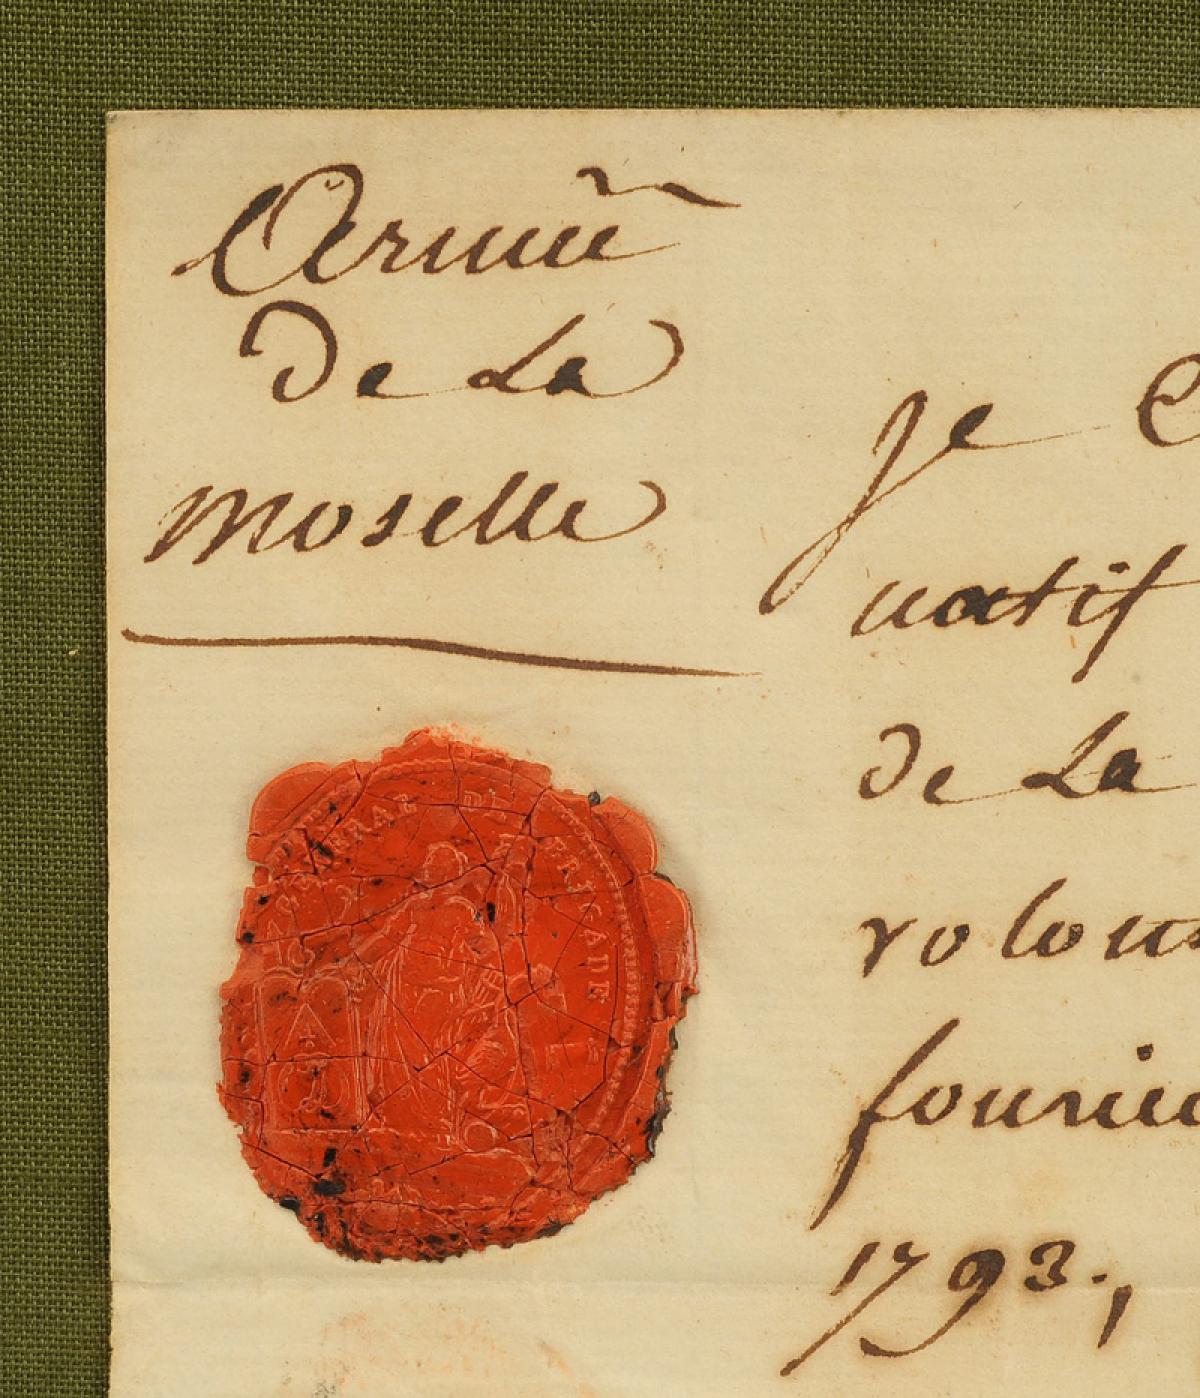 Armée
de La
moselle
Je
natif
de La
volon
fourier
1793.,
DE BRIGADE